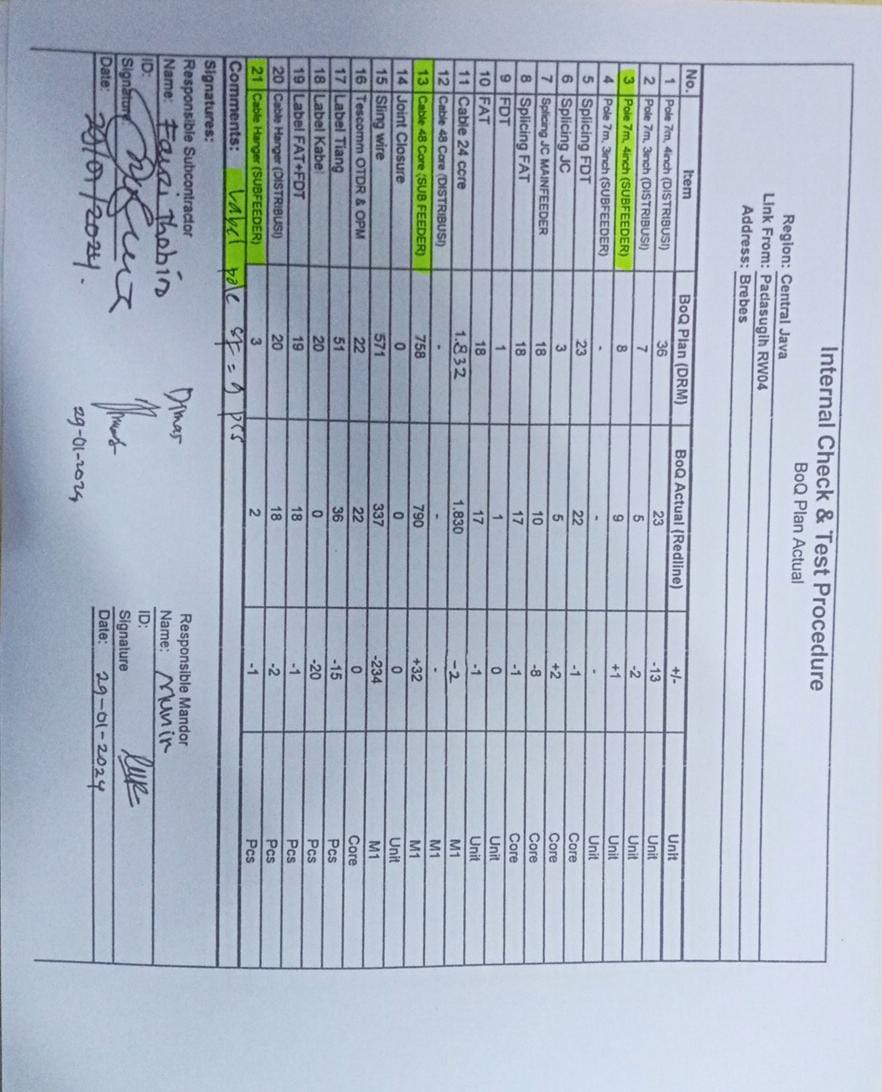 Internal Check & Test Procedure
BoQ Plan Actual
Region: Central Java
Link From: Padasugih RW04
Address: Brebes
No. Item BoQ Plan (DRM) BoQ Actual (Redline) +/- Unit
1 Pole 7m, 4inch (DISTRIBUSI) 36 23 -13 Unit
2 Pole 7m, 3inch (DISTRIBUSI) 7 5 -2 Unit
3 Pole 7m, 4inch (SUBFEEDER) 8 9 +1 Unit
4 Pole 7m, 3inch (SUBFEEDER) - - - Unit
5 Splicing FDT 23 22 -1 Core
6 Splicing JC 3 5 +2 Core
7 Splicing JC MAINFEEDER 18 10 -8 Core
8 Splicing FAT 18 17 -1 Core
9 FDT 1 1 0 Unit
10 FAT 18 17 -1 Unit
11 Cable 24 core 1.832 1.830 -2 M1
12 Cable 48 Core (DISTRIBUSI) - - - M1
13 Cable 48 Core (SUB FEEDER) 758 790 +32 M1
14 Joint Closure 0 0 0 Unit
15 Sling wire 571 337 -234 M1
16 Tescomm OTDR & OPM 22 22 0 Core
17 Label Tiang 51 36 -15 Pcs
18 Label Kabel 20 0 -20 Pcs
19 Label FAT+FDT 19 18 -1 Pcs
20 Cable Hanger (DISTRIBUSI) 20 18 -2 Pcs
21 Cable Hanger (SUBFEEDER) 3 2 -1 Pcs
Comments: Label pole SF = 9 pcs
Signatures:
Responsible Subcontractor
Name: Fauzi Thobin
ID:
Signature:
Date: 29/01/2024.
Dimas
29-01-2024
Responsible Mandor
Name: Munir
ID:
Signature
Date: 29-01-2024